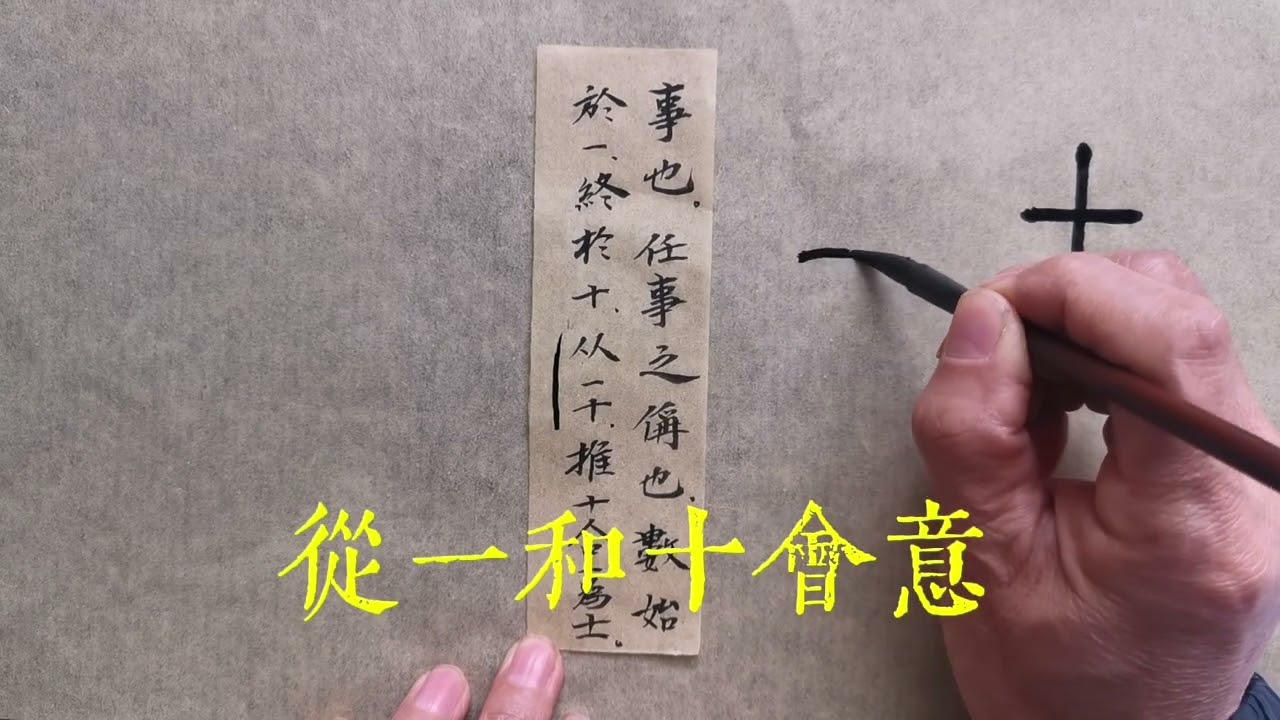 事也。任事之偁也、數始
於一、終於十、从一十、推十為士。
從一和十會意